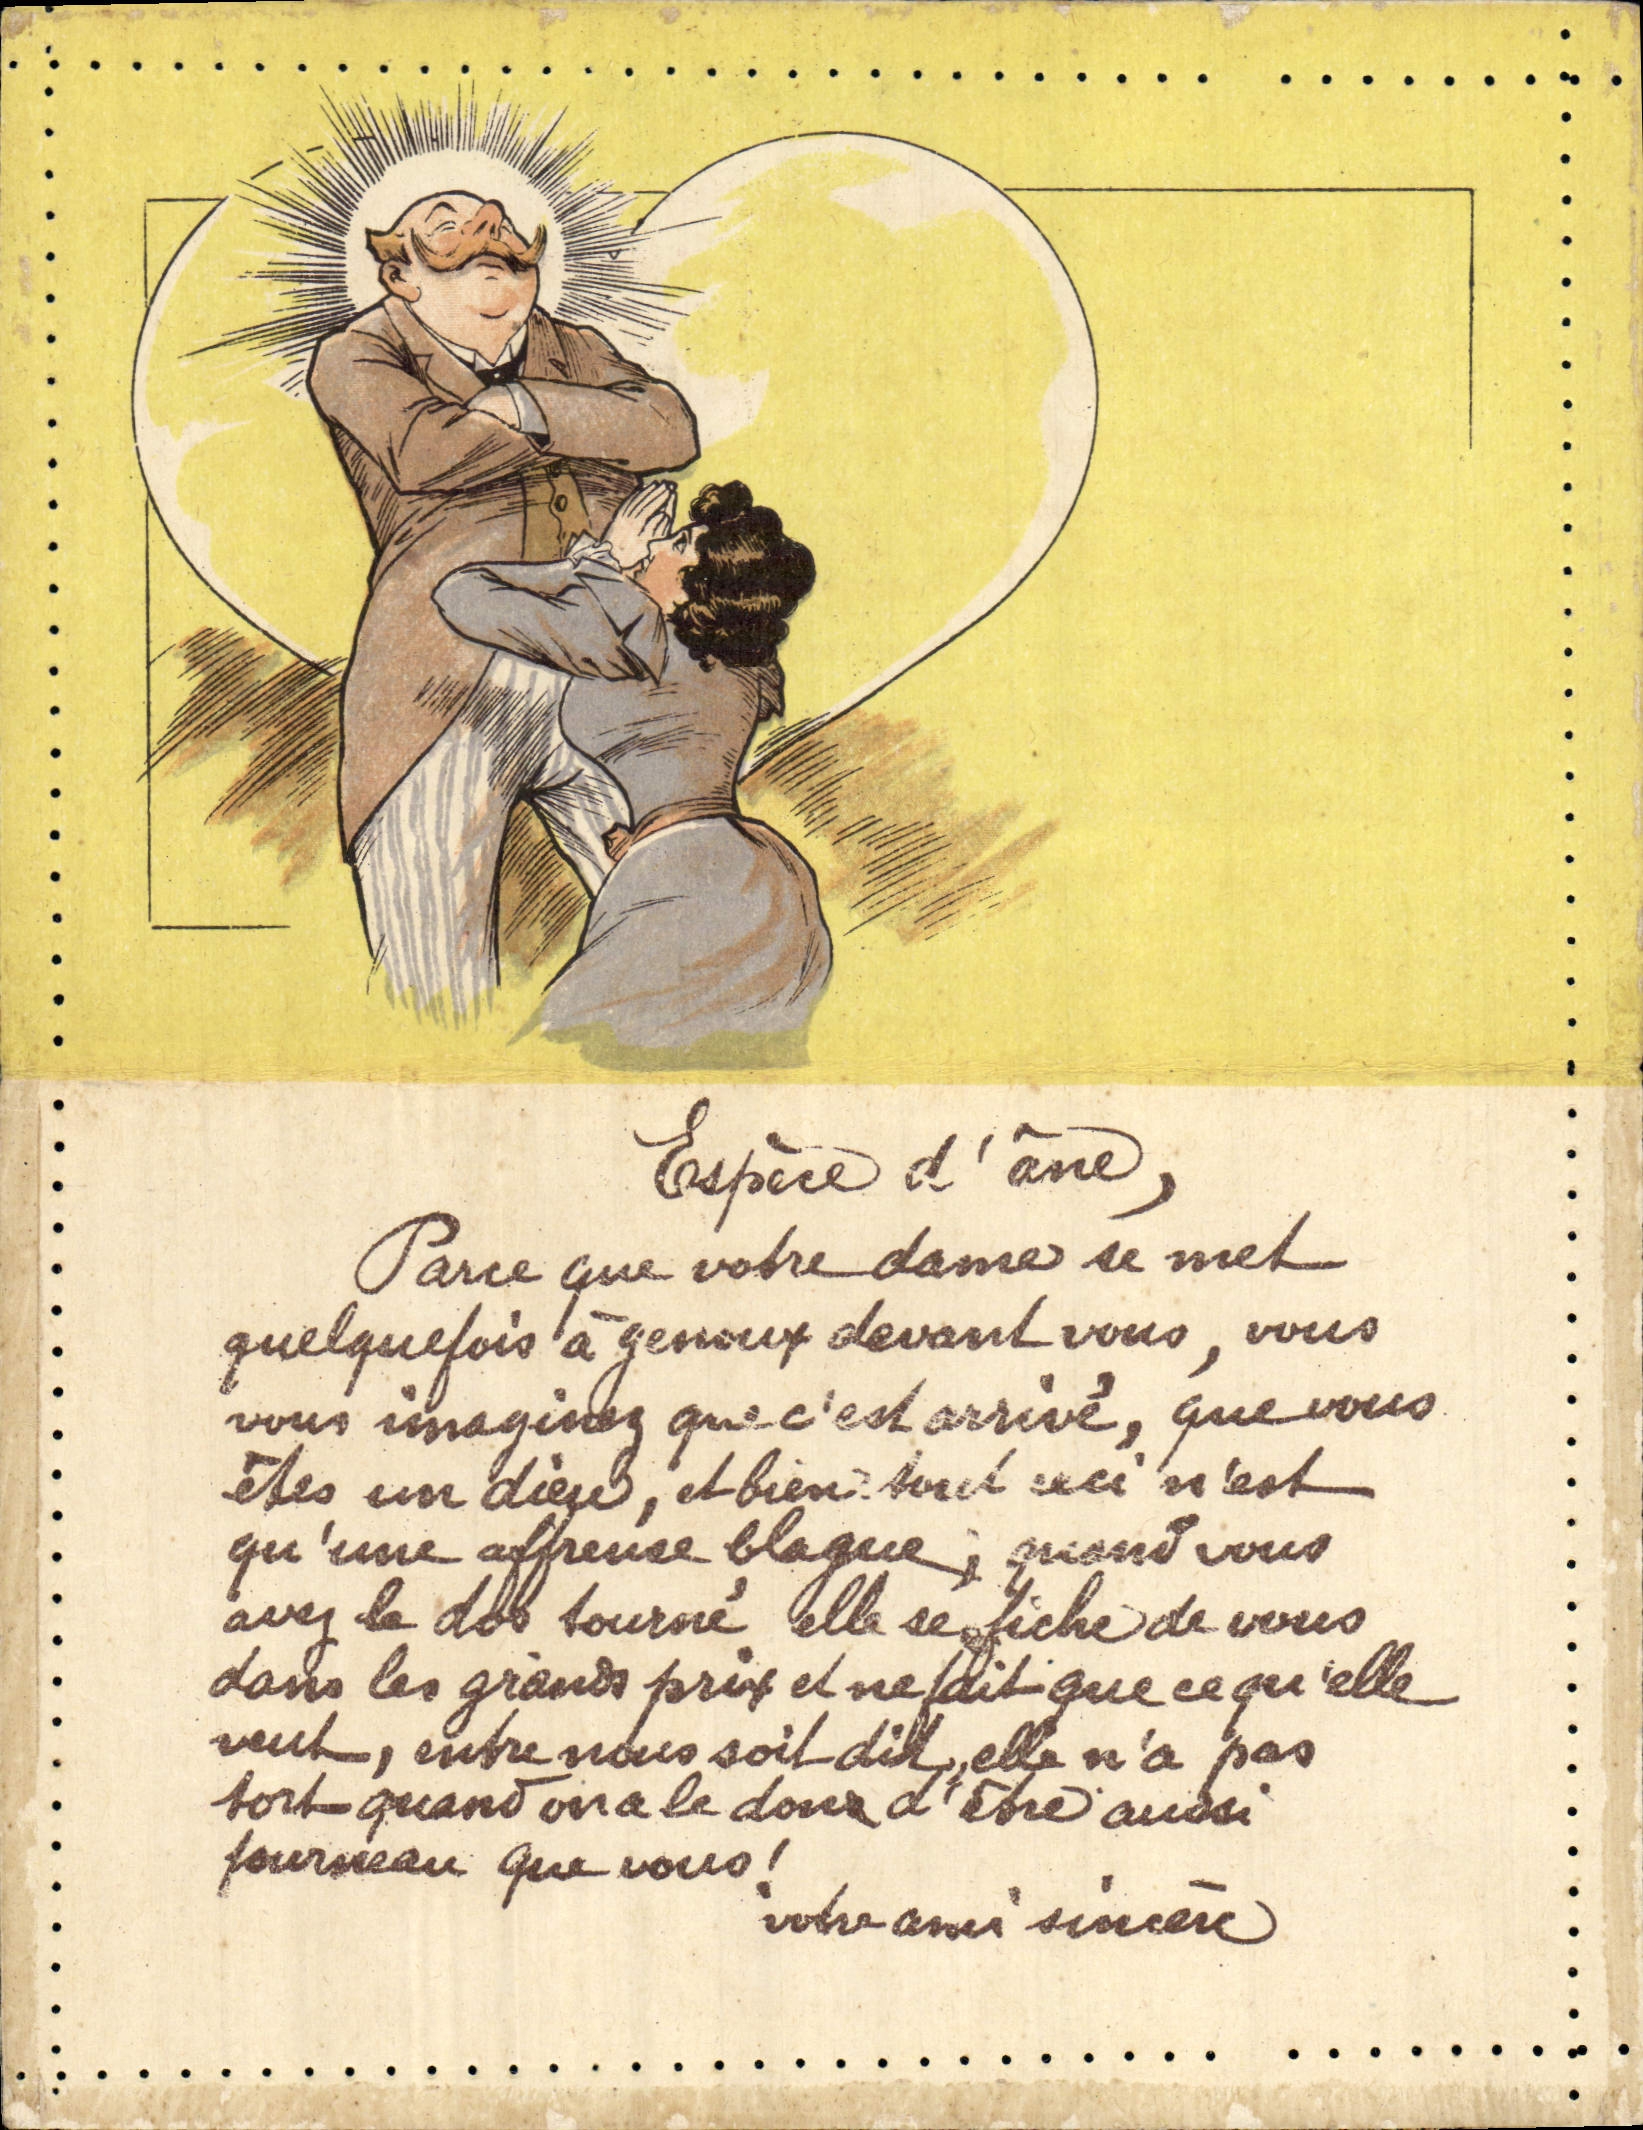 Espèce d'âne,
Parce que votre dame se met
quelquefois à genoux devant vous, vous
vous imaginez que c'est arrivé, que vous
êtes un dieu, et bien tout ceci n'est
qu'une affreuse blague, quand vous
avez le dos tourné elle se fiche de vous
dans les grands prix et ne fait que ce qu'elle
veut, entre nous soit dit, elle n'a pas
tort quand on a le don d'être aussi
fourneau que vous!
votre ami sincère